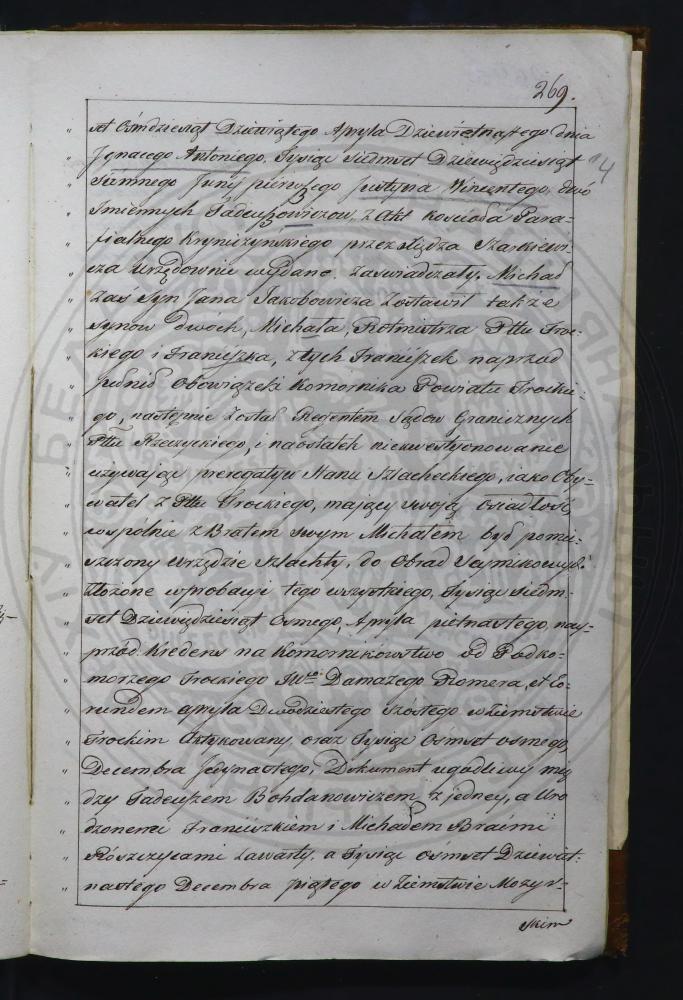 269.
set Ośmdziesiąt Dziewiątego Apryla Dziewiętnastego dnia
Ignacego Antoniego, Tysiąc Siedmset Dziewięćdziesiąt
Siódmego Juny pierwszego Justyna Wincentego, dwó
Imiennych Tadeuszowiczow, z Akt kościoła Para-
fialnego Kryniczynskiego przez Xiędza Szarkiewi-
cza urzędownie wydane zaświadczały. Michał
zaś syn Jana Jakobowicza zostawił także
synow dwóch, Michała, Rotmistrza Pttu Troc-
kiego i Franciszka, z tych Franciszek naprzod
pełnił obowiązek Komornika Powiatu Trockie-
go, następnie został Regentem Sądow Granicznych
Pttu Rzeczyckiego, i naostatek niekwestyonowanie
używając preregatyw Stanu Szlacheckiego, iako Oby-
watel z Pttu Trockiego, mający swoją Osiadłość
wspolnie z Bratem swym Michałem był pomie-
szczony w Urzędzie Szlachty, do Obrad Seymikowych
złożone w probacyi tego wszystkiego, Tysiąc Siedm-
set Dziewięćdziesiąt Osmego, Apryla pietnastego, nay-
przód kredens na Komornikowstwo od Podko-
morzego Trockiego JWgo Damazego Romera, et Eo-
rundem apryla Dwódziestego szóstego w Ziemstwie
Trockim aktykowany, oraz Tysiąc Ośmset osmego,
Decembra Jedynastego, Dokument ugodliwy mię
dzy Tadeuszem Bohdanowiczem z jedney, a Uro
dzonemi Franciszkiem i Michałem Braćmi
Rószczycami zawarty, a Tysiąc Ośmset Dziewiet-
nastego Decembra piątego w Ziemstwie Mozyr-
skim